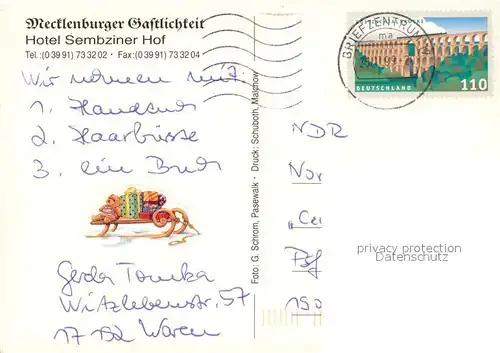 Mecklenburger Gastlichkeit
Hotel Sembziner Hof
Tel.:(0 39 91) 73 32 02 · Fax:(0 39 91) 73 32 04
Wir nehmen mit:
1. Handtuch
2. Haarbürste
3. ein Buch
Gerda Tomka
Witzlebenstr. 57
17192 Waren
Foto: G. Schrom, Pasewalk · Druck: Schuboth, Malchow
BRIEFZENTRUM
ma
DEUTSCHLAND
110
NDR
Nor
„Cei
Psf
190
privacy protection
Datenschutz